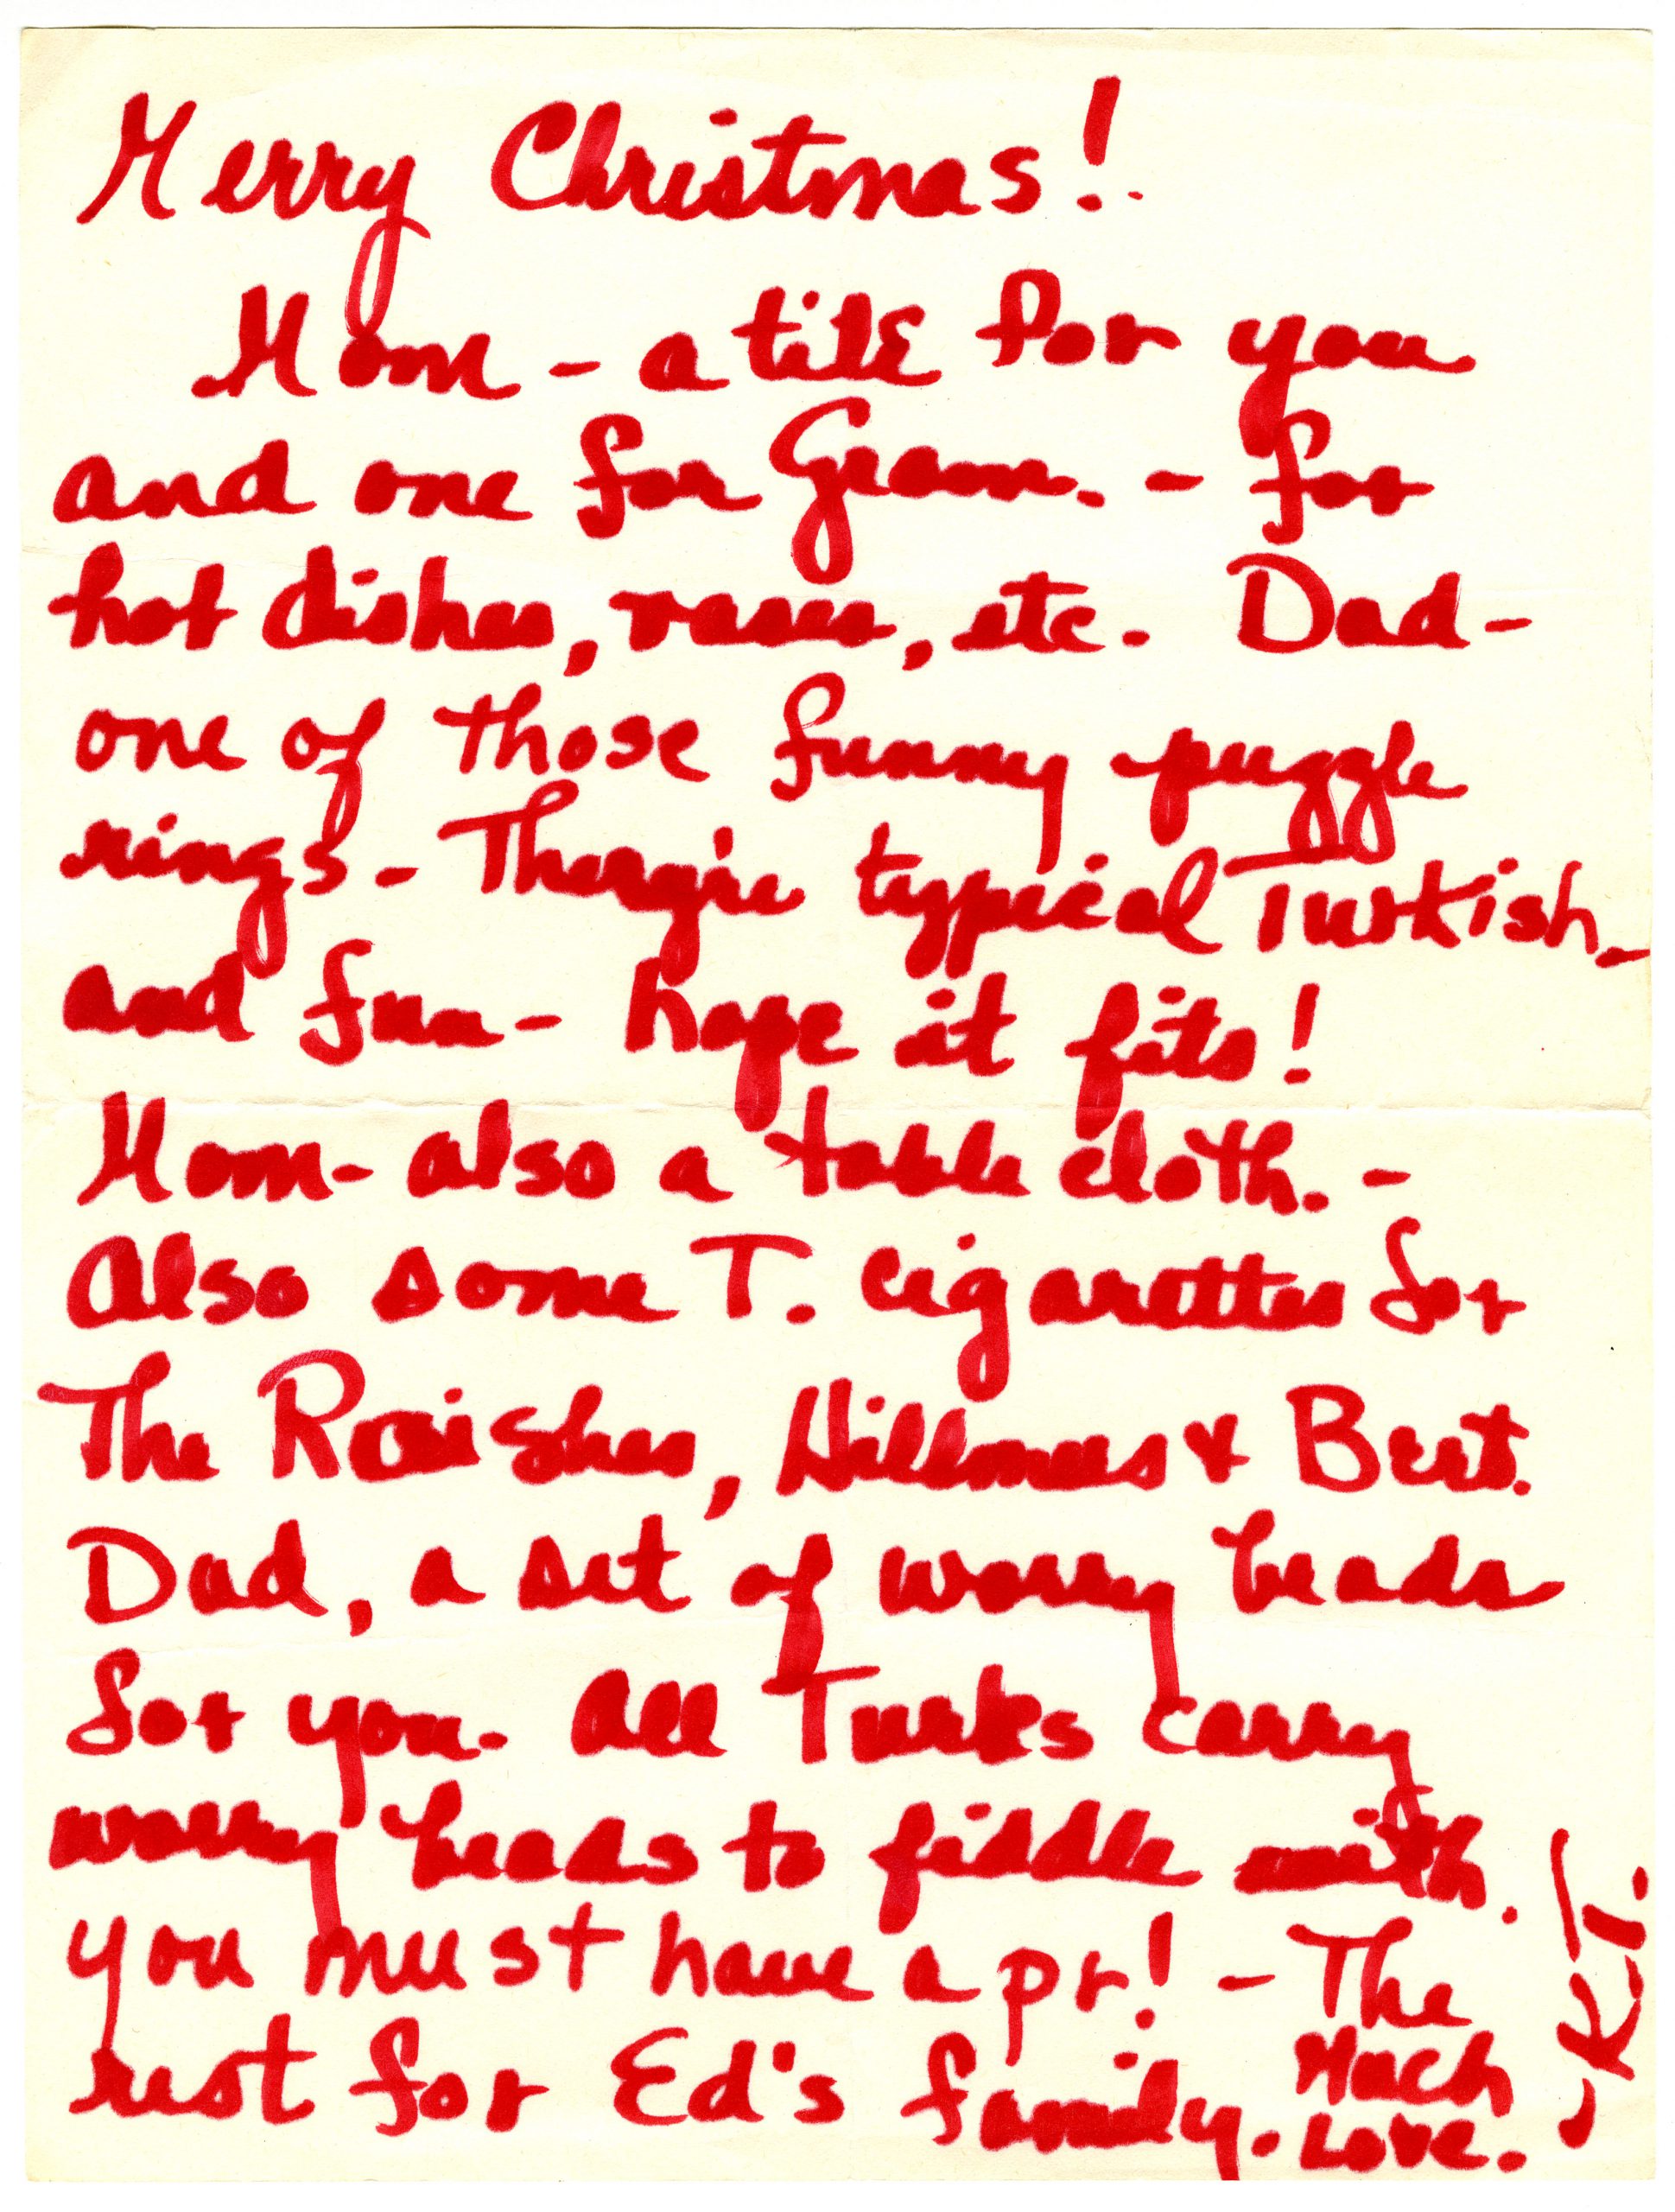 Merry Christmas!
Mom - a tile for you
and one for Gram. - for
hot dishes, vases, etc. Dad -
one of those funny puzzle
rings - They're typical Turkish -
and fun - hope it fits!
Mom - also a table cloth. -
Also some T. cigarettes for
The Raishes, Hillmers & Bert.
Dad, a set of worry beads
for you. All Turks carry
worry beads to fiddle with.
you must have a pr! - The
rest for Ed's family. Much
Love.
- K.T.